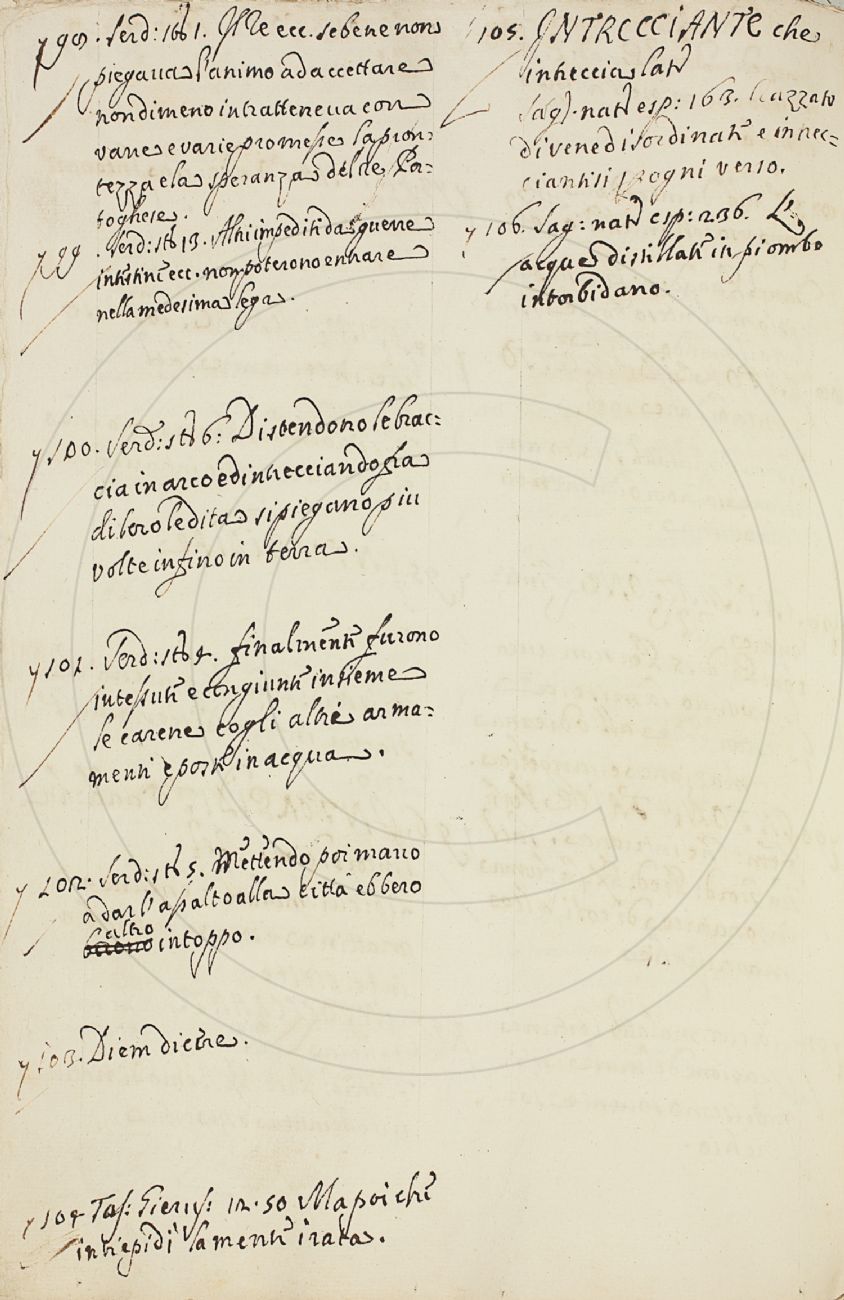 98. Serd: st: 1. Il Re ecc. sebene non
piegava l'animo ad accettare
nondimeno intratteneva con
varie e varie promesse la pron:
tezza e la speranza delle Por-
toghese.
99. Serd: st: 13. Altri impediti da guerre
intestine ecc. non poterono entrare
nella medesima lega.
100. Serd: st: 6: Distendono le brac:
cia in arco ed intrecciando fra
di loro le dita si piegano piu
volte infino in terra.
101. Serd: st: 4. finalmente furono
intessute e congiunte insieme
le carene cogli altri arma:
menti e poste in acqua.
102. Serd: st: 5. Mettendo poi mano
a dar l'assalto alla città ebbero
altro
intoppo.
103. Diem dicere.
104 Tas: Gerus: 12. 50 Ma poi che
intiepidì la mente irata.
105. INTRECCIANTE che
intreccia lat
Sag: nat esp: 163.
di vene disordinate e intrec=
ciantisi p ogni verso.
106. Sag: nat esp: 236. L'
acque distillate in piombo
intorbidano.